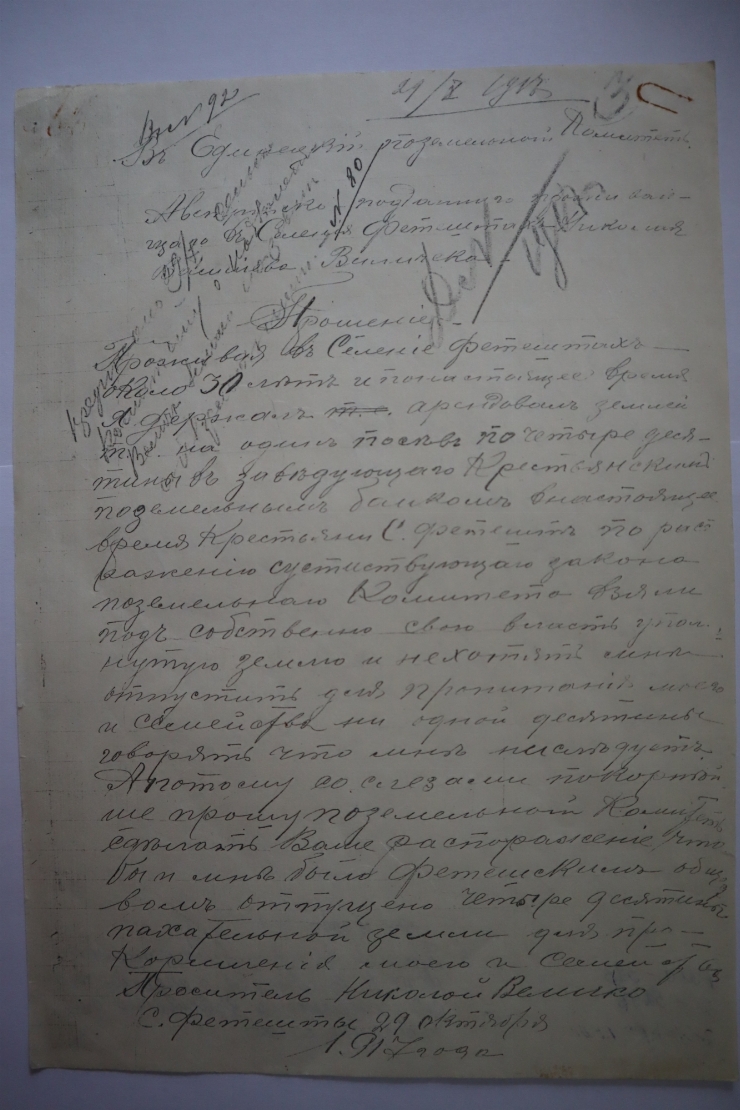 Вх № 92
29/X 1917
3
Въ Единецкій поземельный Комитетъ
Австрійско подданнаго прожива
ющаго въ Селеніи Фетештахъ Николая
№ 80
Прошеніе
Проживая въ Селеніе Фетештахъ
около 30 лѣтъ и по настоящее время
Я держалъ т. е. арендовалъ землей
на одинъ посѣвъ по четыре деся-
тины въ завѣдующаго Крестьянскимъ
поземельнымъ банкомъ в настоящее
время Крестьяни С. Фетешть по рас
ряженію существующаго закона
поземельнаго Комитета взяли
подъ собственно свою власть упом.
нутую землю и нехотятъ мнѣ
отпустить для пропитанія моего
и семейства ни одной десятины
говорятъ что мнѣ нислѣдуетъ.
А потому со слезами покорнѣй
ше прошу поземельной Комитетъ
сдѣлать Ваше распоряженіе, что
бы и мнѣ было Фетешскимъ общ.
вомъ отпущено четыре десятины
пахательной земли для про-
кормленія моего и Семейства
Проситель Николой Величко
с. Фетешты 29 октября
1917 года